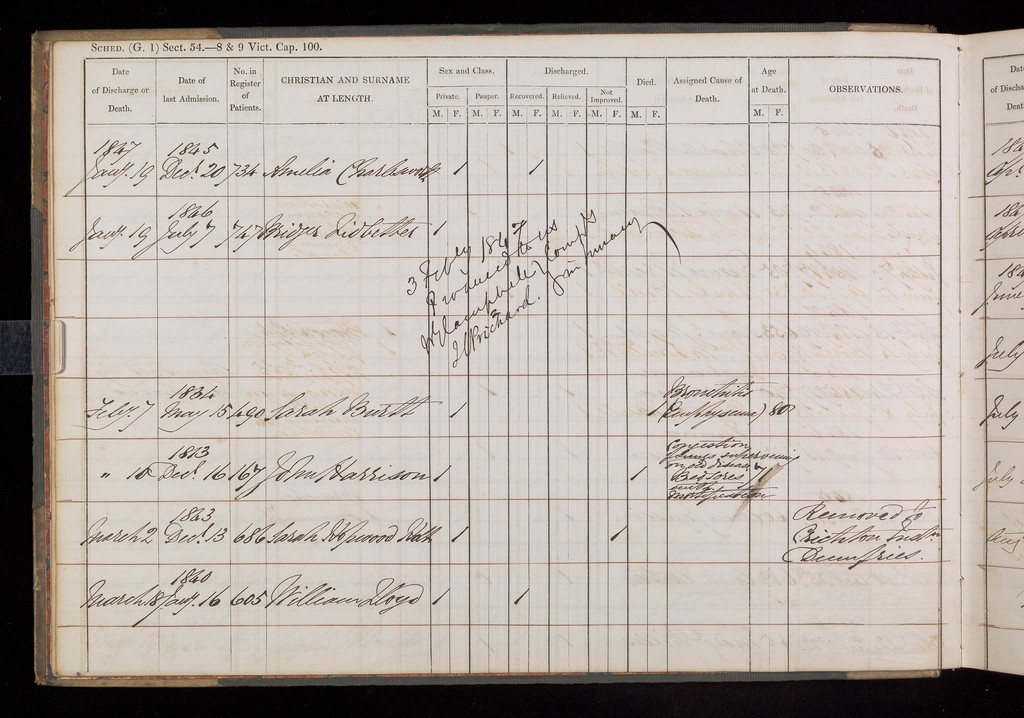 SCHED. (G. 1) Sect. 54.—8 & 9 Vict. Cap. 100.
Date of Discharge or Death.
Date of last Admission.
No. in Register of Patients.
CHRISTIAN AND SURNAME AT LENGTH.
Sex and Class.
Private. Pauper.
M. F. M. F.
Discharged.
Recovered. Relieved. Not Improved.
M. F. M. F. M. F.
Died.
M. F.
Assigned Cause of Death.
Age at Death.
M. F.
OBSERVATIONS.
1847 1845
Jany. 19 Decr. 20 734 Amelia 1 1
1846
Jany. 19 July 7 747 Ridger Lidbetter 1
3 Feby 1847
Produced to us
H Campbell } Comrs
J C Prichard. } in Lunacy
1834
Feby. 7 May 15 490 Sarah Burtt 1 1 Bronchitis (emphysema) 80
1813
" 15 Decr. 16 167 John Harrison 1 1
supervening
on old disease
Bedsores
with
mortification
1843
March 2 Decr. 13 686 Sarah Hopwood 1 1
Removed to
Crichton Instn.
Dumfries.
1840
March 18 Jany. 16 605 William Lloyd 1 1
Date
of Discha
Deat
184
184
184
June
July
July
July
Aug